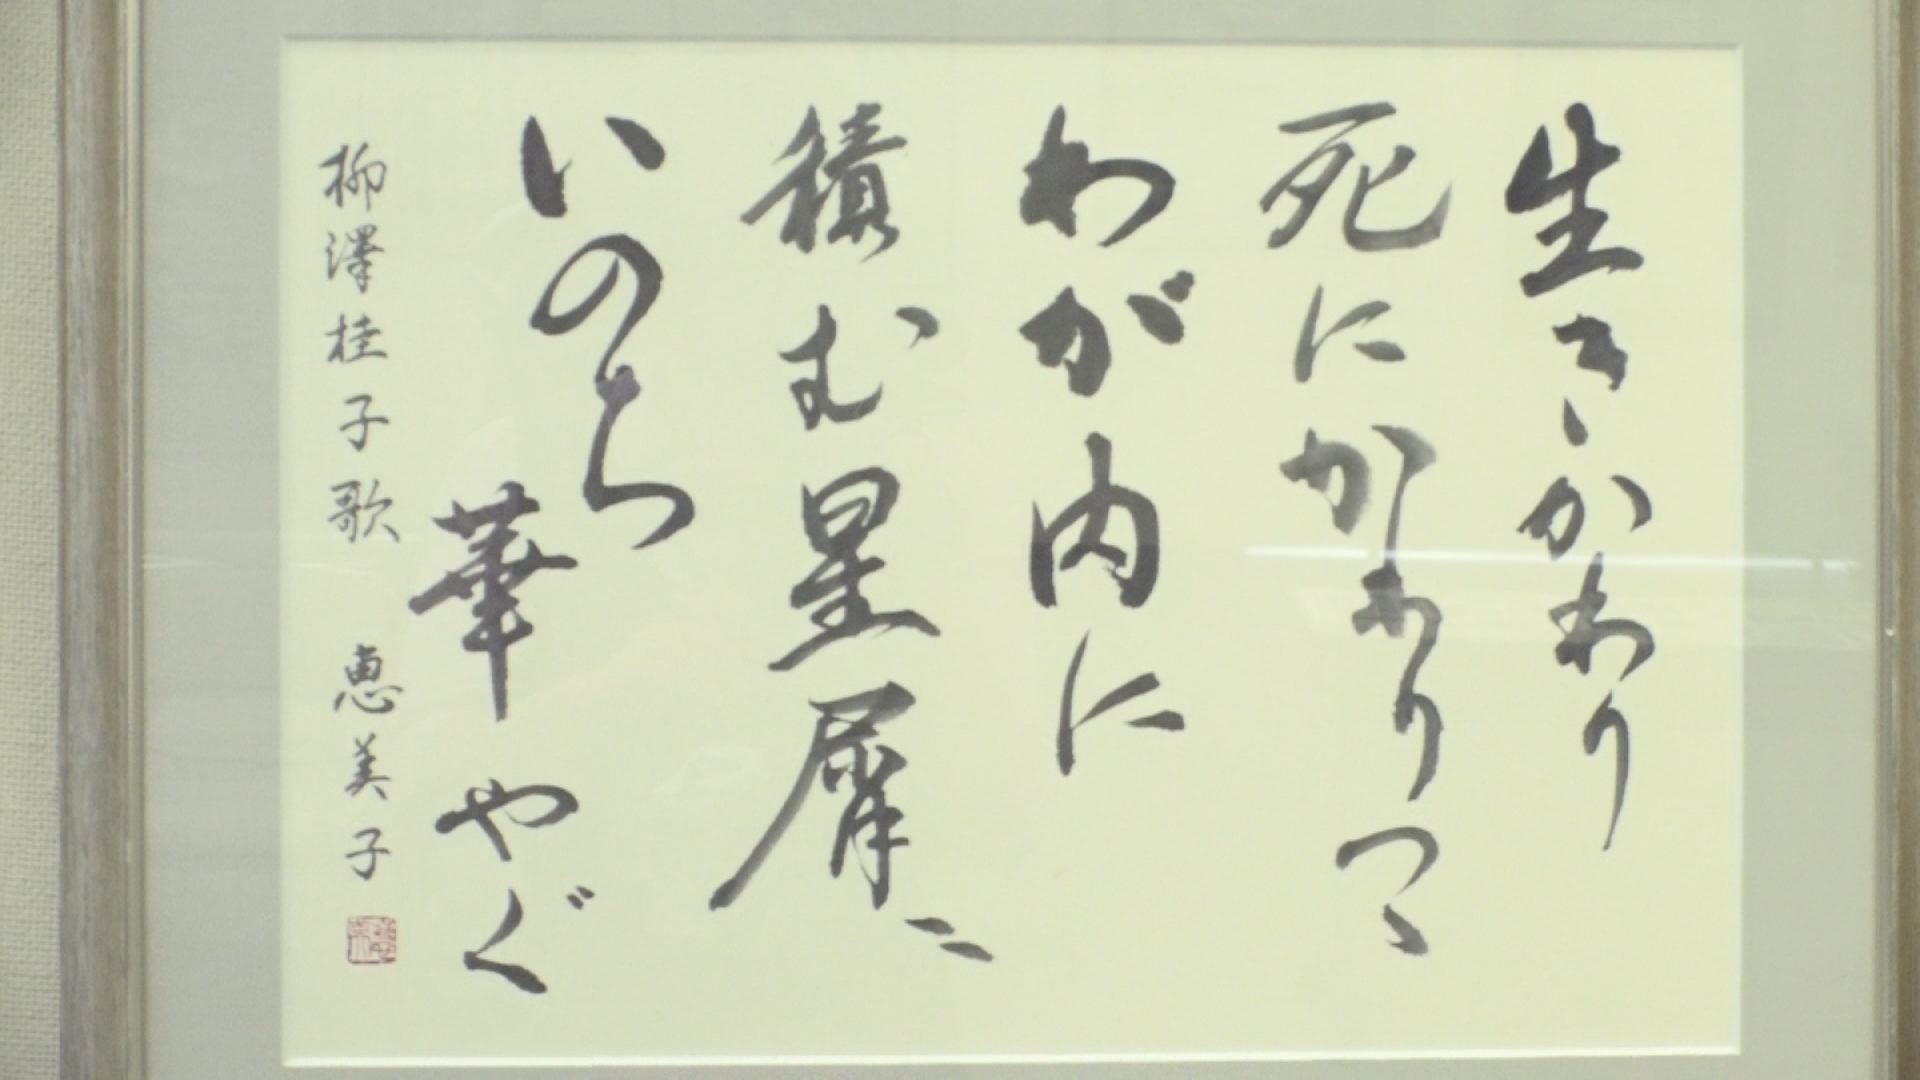 生きかわり
死にかわりつゝ
わが内に
積む星屑に
いのち
華やぐ
柳澤桂子歌 恵美子